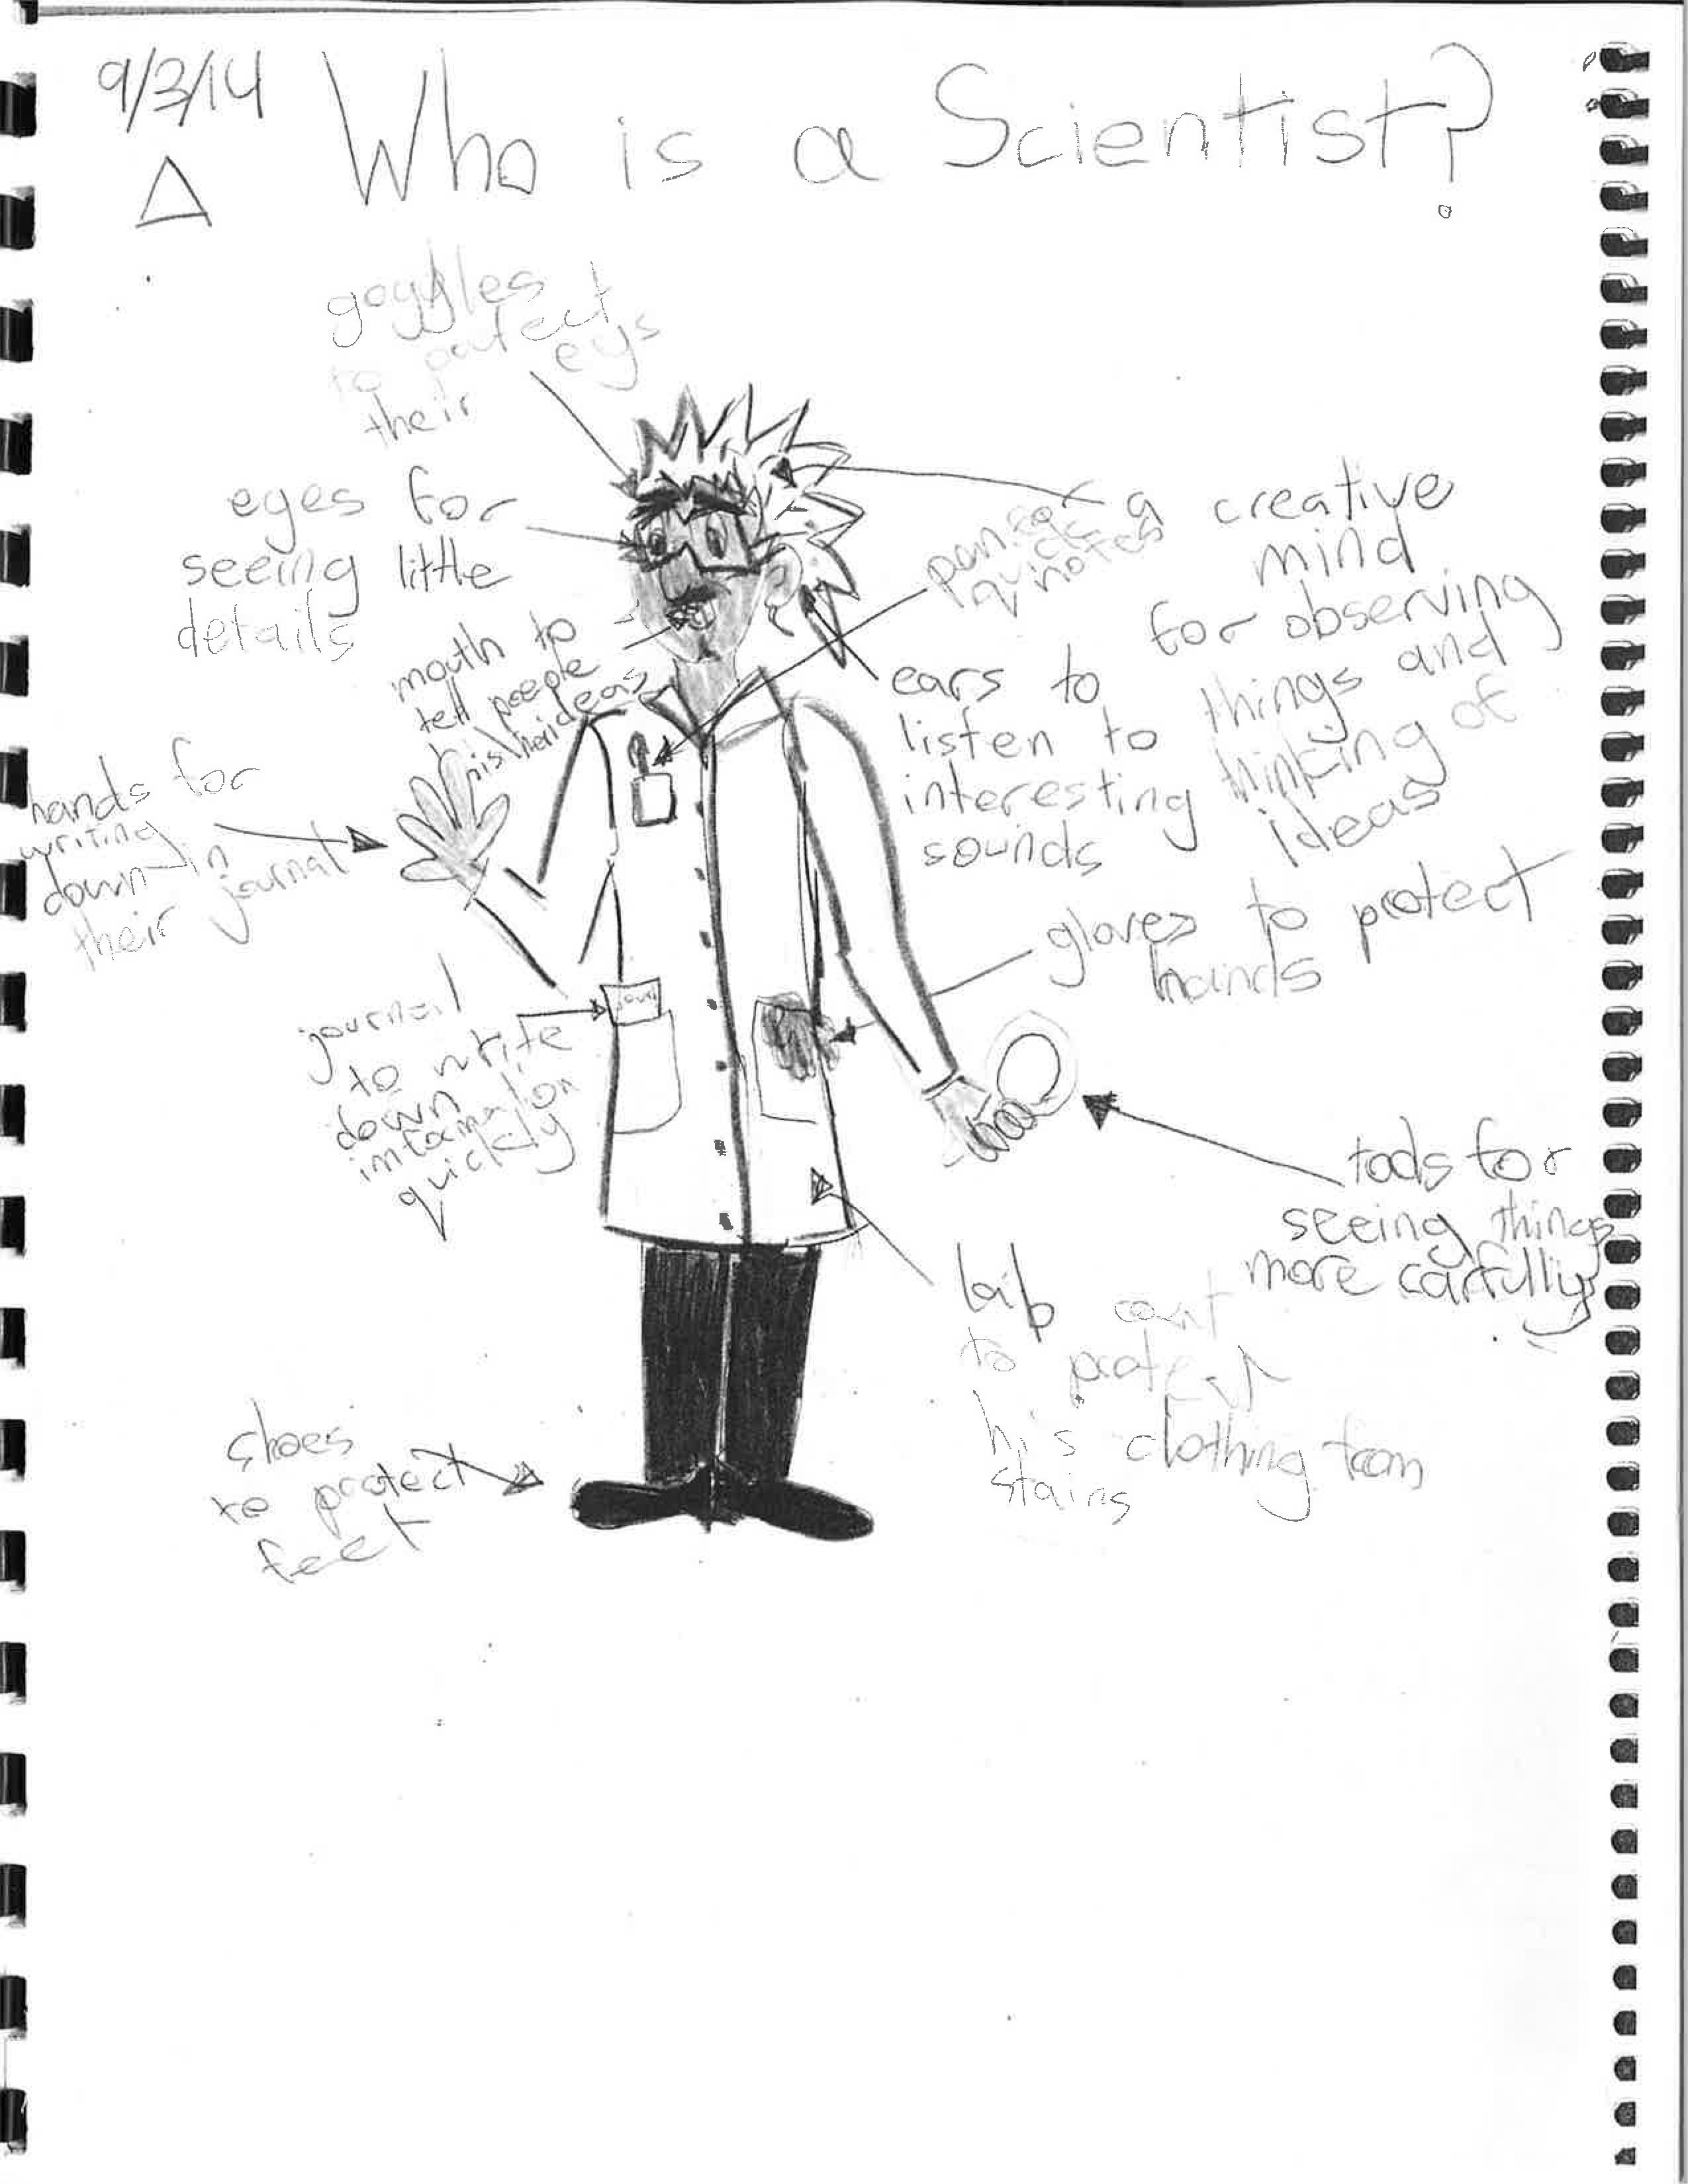 9/3/14
Who is a Scientist?
goggles
to
their eys
eyes for
seeing little
details
a creative
mind
for observing
things and
thinking of
ideas
quick
notes
mouth to
tell people
his/her ideas
ears to
listen to
interesting
sounds
hands for
writing
down in
their journal
gloves to protect
hands
journal
to write
down
information
quickly
tools for
seeing things
more carfully
lab coat
to protect
his clothing from
stains
shoes
to protect
feet